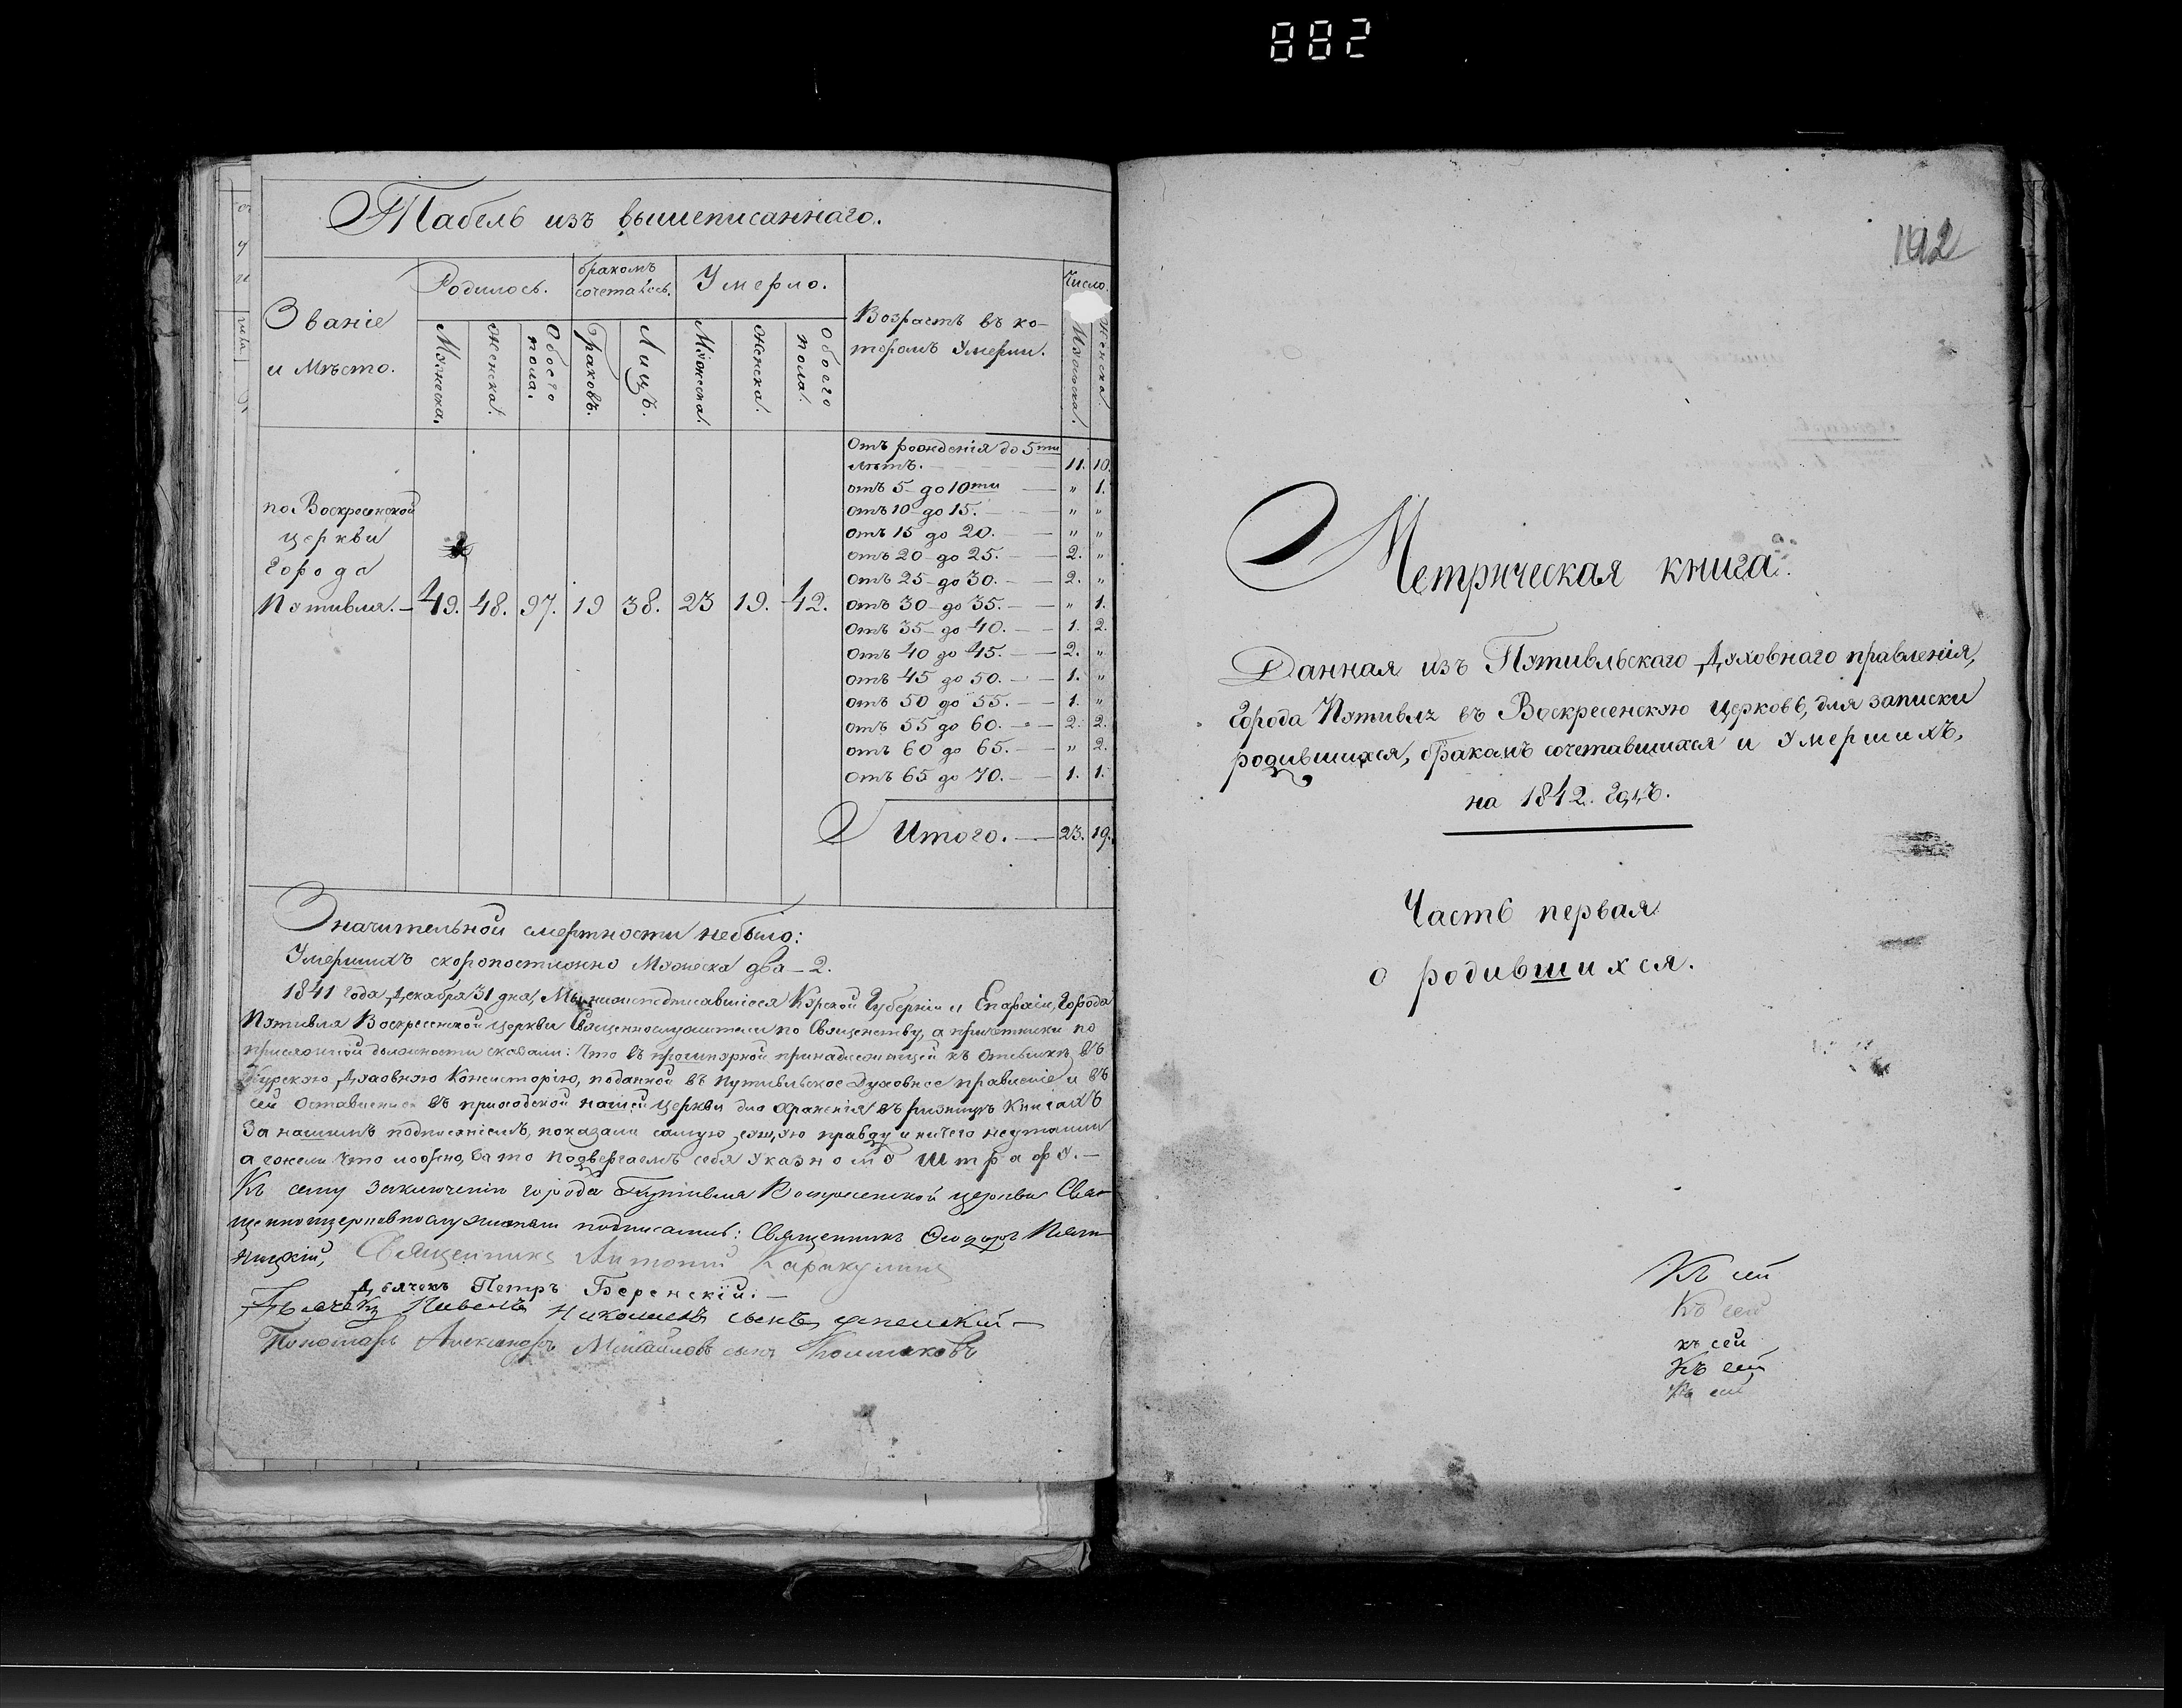 882
Табель изъ вышеписаннаго.
Званіе
и Мѣсто.
Родилось.
бракомъ
сочеталось.
Умерло.
Возрастъ въ ко-
торомъ Умерли.
Число.
Мужеска.
женска.
Обоего
пола.
Браковъ.
Лицъ.
Мужеска.
женска.
Обоего
пола.
Мужеска.
женска.
по Воскресенской
церкви
Города
Путивля.— 49. 48. 97. 19 38. 23 19. 42.
Отъ рожденія до 5ти
лѣтъ. 11. 10.
отъ 5 до 10ти — " 1.
отъ 10 до 15. — " "
отъ 15 до 20. — " "
отъ 20 до 25. — 2. "
отъ 25 до 30. — 2. "
отъ 30 до 35. — " 1.
отъ 35 до 40. — 1. 2.
отъ 40 до 45. — 2. "
отъ 45 до 50. — 1. "
отъ 50 до 55. — 1. "
отъ 55 до 60. — 2. 2.
отъ 60 до 65. — " 2.
отъ 65 до 70. — 1. 1.
Итого. — 23. 19.
Значительной смертности небыло:
Умершихъ скоропостижно Мужеска два — 2.
1841 года Декабря 31 дня, Мы нижеподписавшіеся Курской Губерніи и Епархіи, Города
Путивля Воскресенской церкви Священнослужители по Священству, а причетники по
присяжной должности сказали: что въ прошнурной принадлежащей къ отсылкѣ въ
Курскую Духовную Консисторію, поданной въ Путивльское Духовное правленіе и въ
сей оставшейся въ приходской нашей церкви для храненія въ ризницѣ книгахъ
За нашимъ подписаніемъ, показали самую сущую правду и ничего неутаили
а ежели что ложно, За то подвергаемъ себя Указному Штрафу.—
Къ сему заключенію города Путивля Воскресенской церкви Свя-
щенноцерковнослужители подписались: Священникъ Ѳеодоръ Пят-
ницкій, Священникъ Антоній Каракулинъ
Дьячекъ Петръ Беренскій.—
Дьячекъ Павелъ Николаевъ сынъ Успенскій—
Пономарь Александръ Михайловъ сынъ
192
Метрическая книга.
Данная изъ Путивльскаго Духовнаго правленія,
Города Путивля въ Воскресенскую церковь, для записки
родившихся, бракомъ сочетавшихся и Умершихъ,
на 1842. Годъ.
Часть первая
о родившихся.
Къ сей
Къ сей
къ сей
Къ сей
Къ сей